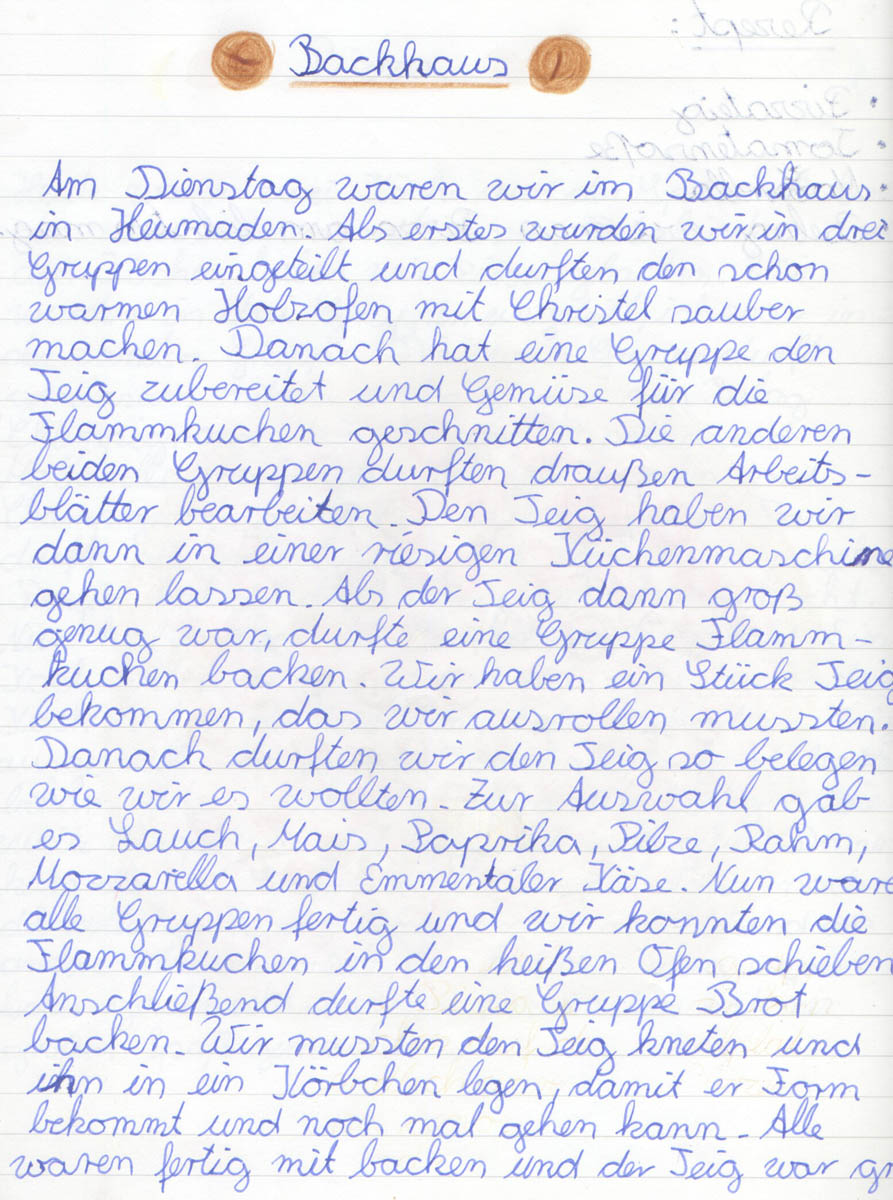 Backhaus
Am Dienstag waren wir im Backhaus
in Heumaden. Als erstes wurden wir in drei
Gruppen eingeteilt und durften den schon
warmen Holzofen mit Christel sauber
machen. Danach hat eine Gruppe den
Teig zubereitet und Gemüse für die
Flammkuchen geschnitten. Die anderen
beiden Gruppen durften draußen Arbeits-
blätter bearbeiten. Den Teig haben wir
dann in einer riesigen Küchenmaschine
gehen lassen. Als der Teig dann groß
genug war, durfte eine Gruppe Flamm-
kuchen backen. Wir haben ein Stück Teig
bekommen, das wir ausrollen mussten.
Danach durften wir den Teig so belegen
wie wir es wollten. Zur Auswahl gab
es Lauch, Mais, Paprika, Pilze, Rahm,
Mozzarella und Emmentaler Käse. Nun ware
alle Gruppen fertig und wir konnten die
Flammkuchen in den heißen Ofen schieben
Anschließend durfte eine Gruppe Brot
backen. Wir mussten den Teig kneten und
ihn in ein Körbchen legen, damit er Form
bekommt und noch mal gehen kann. Alle
waren fertig mit backen und der Teig war gr
Rezept:
Pizzateig
Tomatensoße